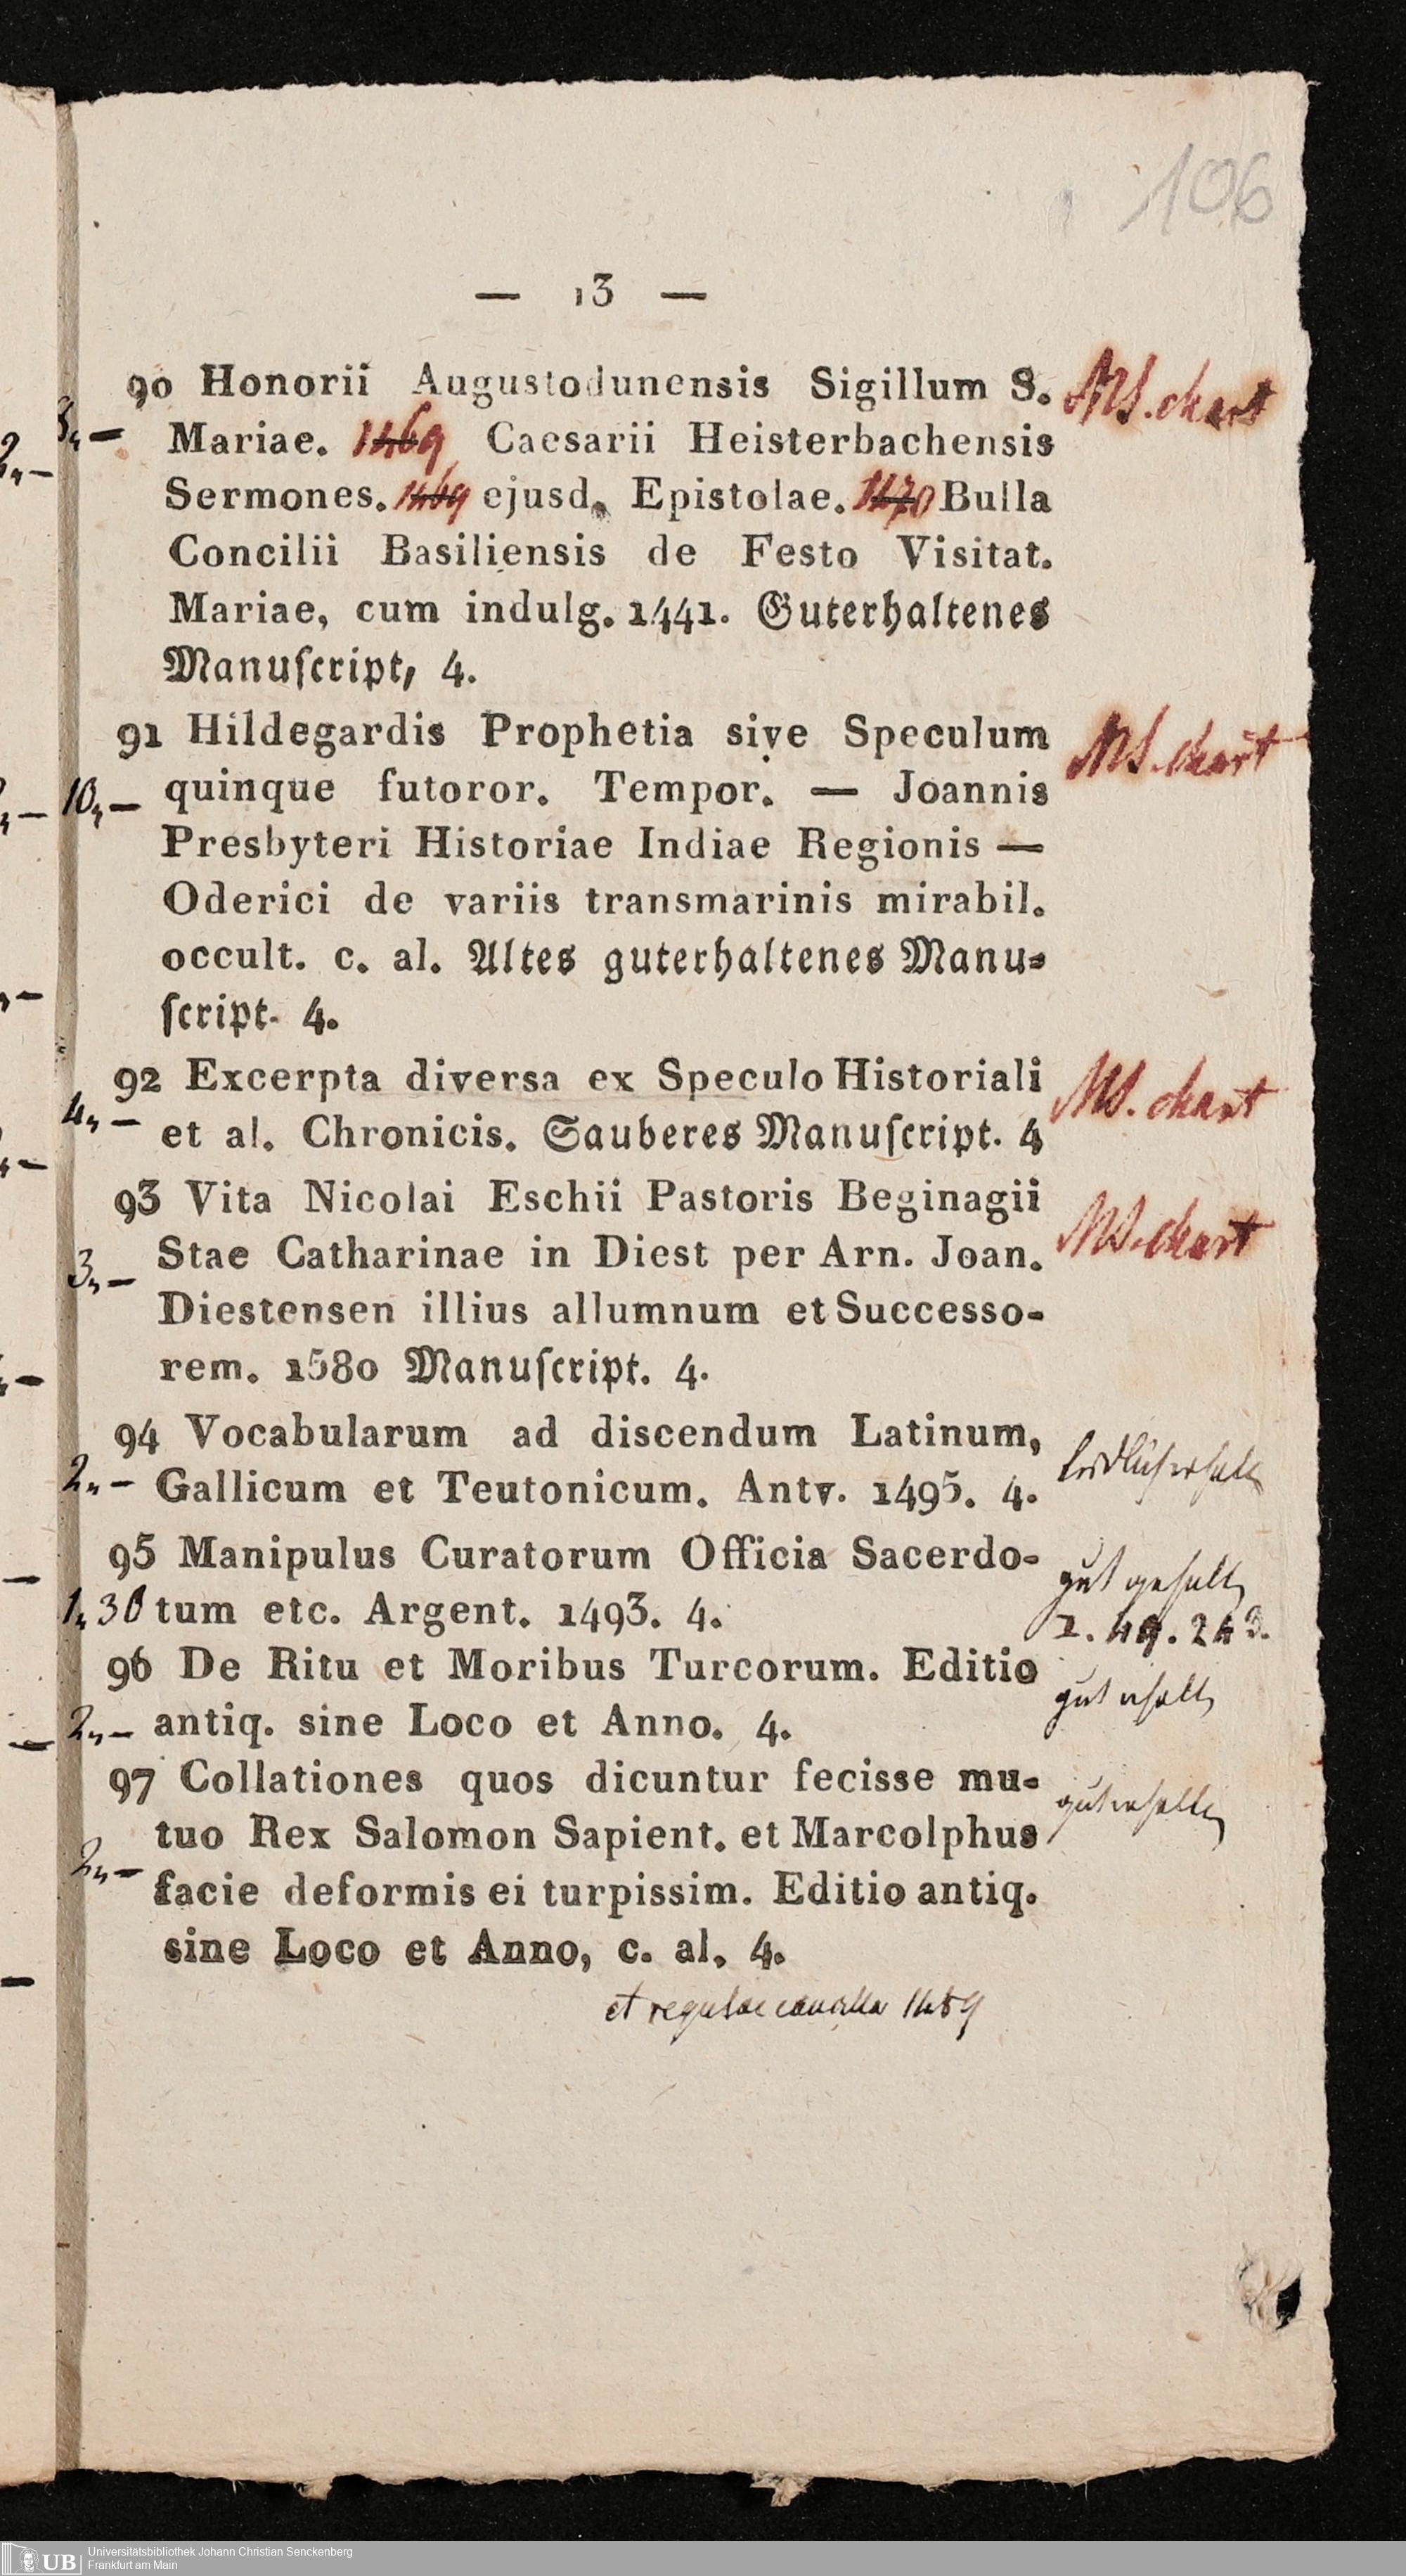 106
— 13 —
90 Honorii Augustodunensis Sigillum S. MS. chart
8,, —
Mariae. 1469 Caesarii Heisterbachensis
Sermones. 1469 ejusd. Epistolae. 1470 Bulla
Concilii Basiliensis de Festo Visitat.
Mariae, cum indulg. 1441. Guterhaltenes
Manuſcript, 4.
91 Hildegardis Prophetia sive Speculum MS. chart
10,, — quinque futoror. Tempor. — Joannis
Presbyteri Historiae Indiae Regionis —
Oderici de variis transmarinis mirabil.
occult. c. al. Altes guterhaltenes Manu-
ſcript. 4.
92 Excerpta diversa ex Speculo Historiali MS. chart
4,, — et al. Chronicis. Sauberes Manuſcript. 4
93 Vita Nicolai Eschii Pastoris Beginagii MS. chart
3,, — Stae Catharinae in Diest per Arn. Joan.
Diestensen illius allumnum et Successo-
rem. 1580 Manuſcript. 4.
94 Vocabularum ad discendum Latinum,
2,, — Gallicum et Teutonicum. Antv. 1495. 4.
95 Manipulus Curatorum Officia Sacerdo- gut
1,, 30 tum etc. Argent. 1493. 4.
96 De Ritu et Moribus Turcorum. Editio gut erhalten
2,, — antiq. sine Loco et Anno. 4.
97 Collationes quos dicuntur fecisse mu- gut erhalten
tuo Rex Salomon Sapient. et Marcolphus
2,, — facie deformis ei turpissim. Editio antiq.
sine Loco et Anno, c. al. 4.
et regulae
UB Universitätsbibliothek Johann Christian Senckenberg
Frankfurt am Main